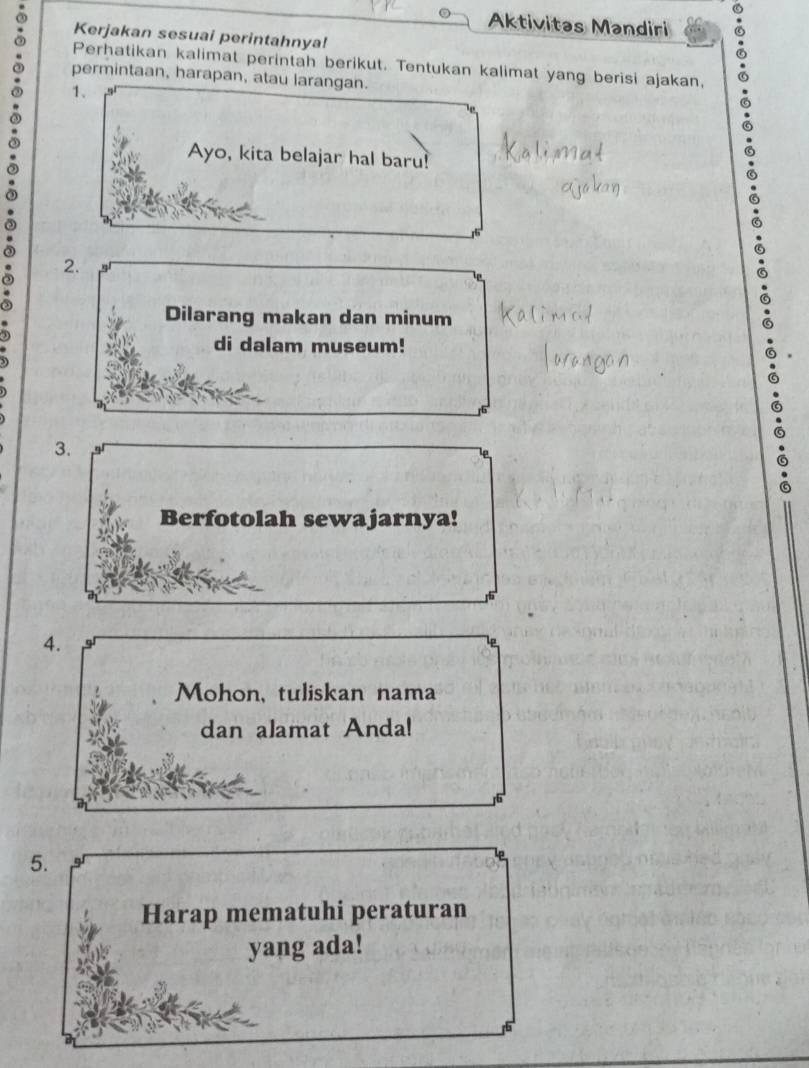 Aktivitas Mandiri
Kerjakan sesuai perintahnya!
Perhatikan kalimat perintah berikut. Tentukan kalimat yang berisi ajakan,
permintaan, harapan, atau larangan.
1.
Ayo, kita belajar hal baru!
Kalimat
ajakan
2.
Dilarang makan dan minum
di dalam museum!
Kalimat
larangan
3.
Berfotolah sewajarnya!
4.
Mohon, tuliskan nama
dan alamat Anda!
5.
Harap mematuhi peraturan
yang ada!